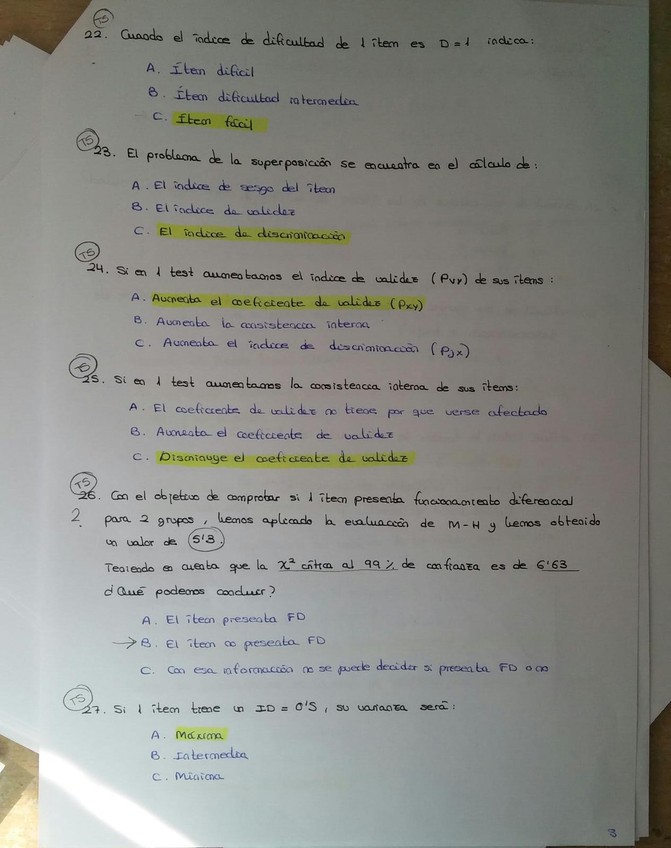 T5
22. Cuando el índice de dificultad de 1 ítem es D=1 indica:
A. Ítem difícil
B. Ítem dificultad intermedia
C. Ítem fácil
T5
23. El problema de la superposición se encuentra en el cálculo de:
A. El índice de sesgo del ítem
B. El índice de validez
C. El índice de discriminación
T5
24. Si en 1 test aumentamos el índice de validez (ρvy) de sus ítems:
A. Aumenta el coeficiente de validez (ρxy)
B. Aumenta la consistencia interna
C. Aumenta el índice de discriminación (ρjx)
25. Si en 1 test aumentamos la consistencia interna de sus ítems:
A. El coeficiente de validez no tiene por que verse afectado
B. Aumenta el coeficiente de validez
C. Disminuye el coeficiente de validez
T5
26. Con el objetivo de comprobar si 1 ítem presenta funcionamiento diferencial
2. para 2 grupos, hemos aplicado la evaluación de M-H y hemos obtenido
un valor de 5'3.
Teniendo en cuenta que la χ² crítica al 99% de confianza es de 6'63
¿Qué podemos concluir?
A. El ítem presenta FD
→ B. El ítem no presenta FD
C. Con esa información no se puede decidir si presenta FD o no
T5
27. Si 1 ítem tiene un ID = 0'5, su varianza será:
A. Máxima
B. Intermedia
C. Mínima
3